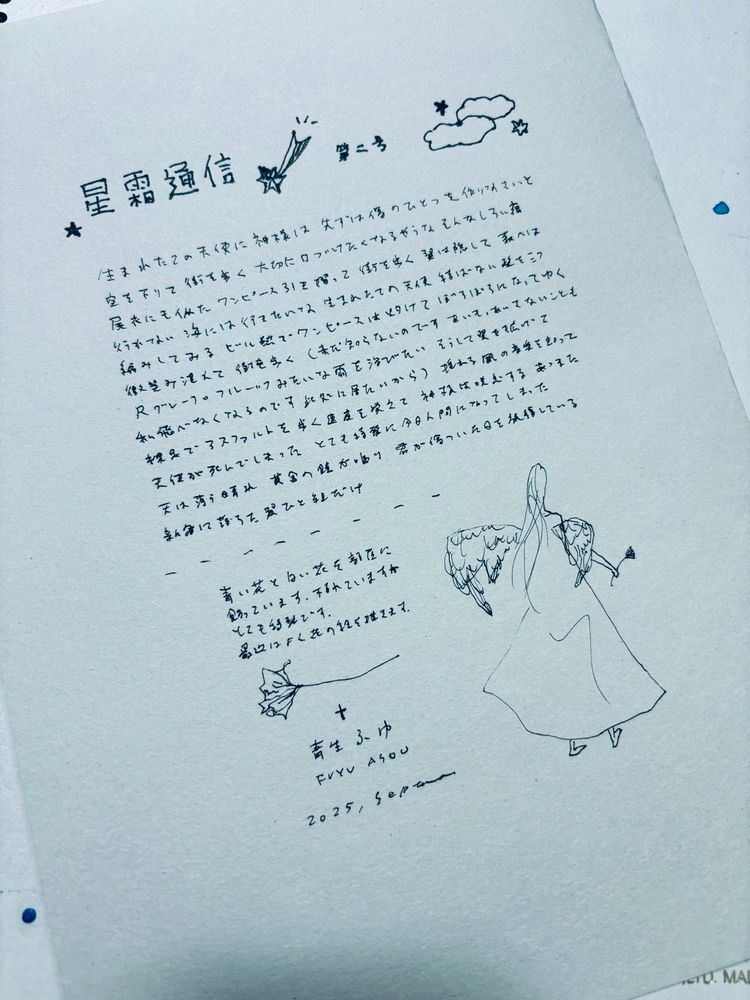 星霜通信 第二号
生まれたての天使に神様は 先ずは傷のひとつを作りなさいと
空を下りて街を歩く 大切に口づけたくなるやうな そんなしろい
展衣にも似た ワンピース引き摺って 街を歩く 翼は隠して
行かない 海には行きたいけど 生まれたての天使 結ばない髪を三つ
編みしてみる ビル熱でワンピースは焼けて ぼろぼろになってゆく
微笑み浮べて 街を歩く (まだ知らないのです あいも、あいでないことも
グレープフルーツみたいな雨を浴びたい そうして翼を拡げて
私飛べなくなるのです 此処に居たいから) 揺れる風の音楽を
裸足でアスファルトを歩く 温度を 神様は あつまた
天使が死んでしまった とても綺麗に今日人間になってしまった
天は薄う晴れ 黄金の鐘が鳴り 君が傷ついた日を祝福している
新宿に落ちた 翼ひと組だけ
青い花と白い花を部屋に
飾っています。枯れていますが
とても綺麗です。
最近はよく花の絵を描きます。
青生ふゆ
FUYU AOU
2025,